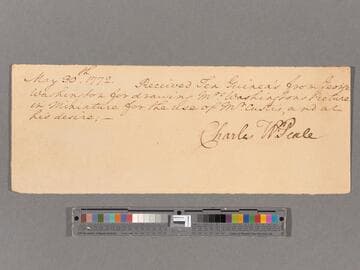 May 30th. 1772. Received Ten Guineas from George
Washington for drawing Mrs Washingtons Picture
in Miniature for the use of Mr Custis, and at
his desire; —
Charles Wn Peale